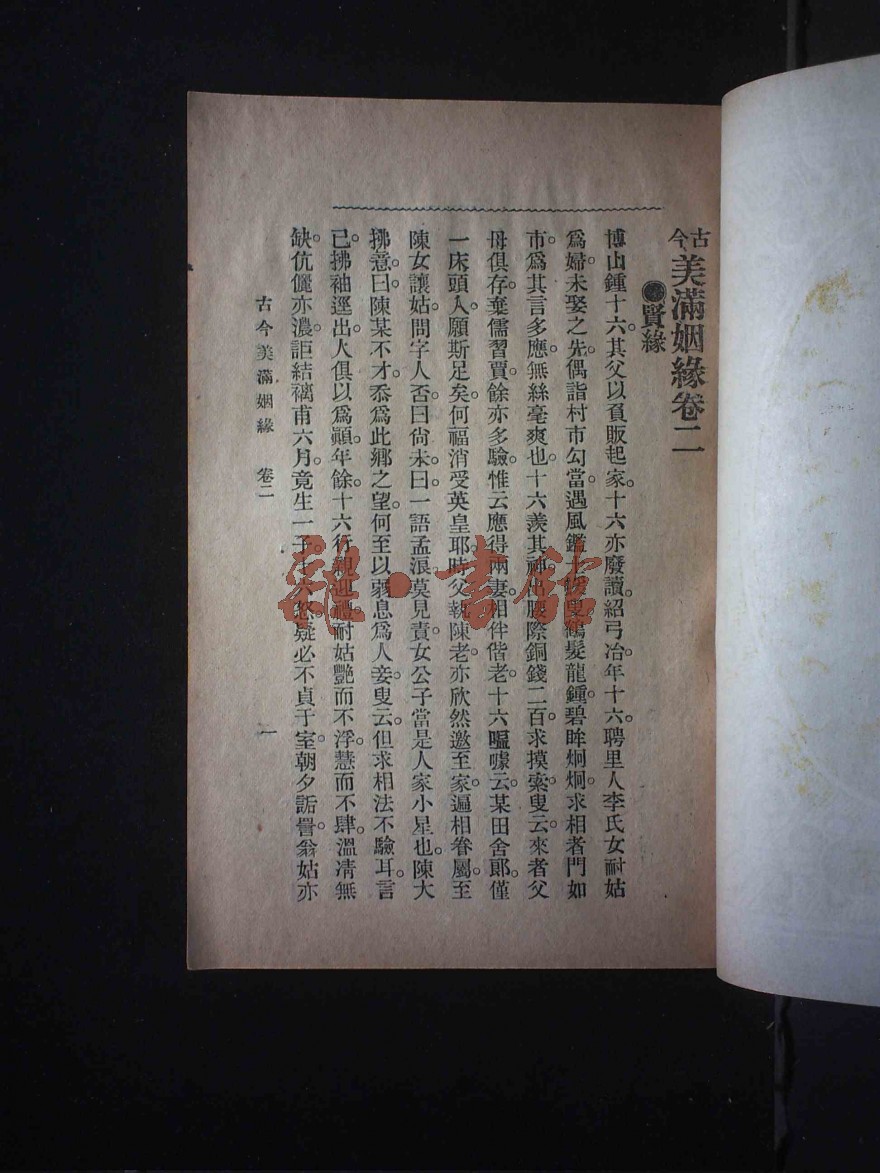 古今美滿姻緣卷二
●賢緣
博山鍾十六。其父以負販起家。十六亦廢讀。紹弓冶。年十六。聘里人李氏女耐姑
爲婦。未娶之先。偶詣村市勾當。遇風鑑叟鶴髮龍鍾。碧眸炯炯。求相者門如
市。爲其言多應。無絲毫爽也。十六羨其神。出腰際銅錢二百。求摸索。叟云。來者父
母俱存。棄儒習賈。餘亦多驗。惟云應得兩妻。相伴偕老。十六嘔噱云。某田舍郞。僅
一床頭人。願斯足矣。何福消受英皇耶。時父執陳老。亦欣然邀至家。遍相眷屬。至
陳女讓姑。問字人否。曰尙未。曰一語孟浪。莫見責。女公子當是人家小星也。陳大
拂意。曰陳某不才。忝爲此鄉之望。何至以弱息爲人妾。叟云。但求相法不驗耳。言
已拂袖逕出。人俱以爲顚。年餘。十六行親迎禮。耐姑艷而不浮。慧而不肆。溫凊無
缺。伉儷亦濃。詎結褵甫六月。竟生一子。十六怒。疑必不貞于室。朝夕詬詈。翁姑亦
古今美滿姻緣 卷二
一
雜·書館